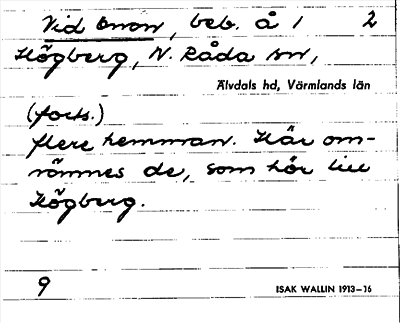 Vid Enon, beb. å 1 2
Högberg, N. Råda sn,
Älvdals hd, Värmlands län
(forts.)
flere hemman. Här om-
nämnes de, som hör till
Högberg.
9
ISAK WALLIN 1913–16